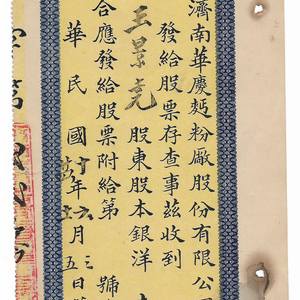 濟南華慶麪粉廠股份有限公
發給股票存查事茲收到
王景堯
股東股本銀洋
合應發給股票附給第 號
華民國十年六月三
五日
字第